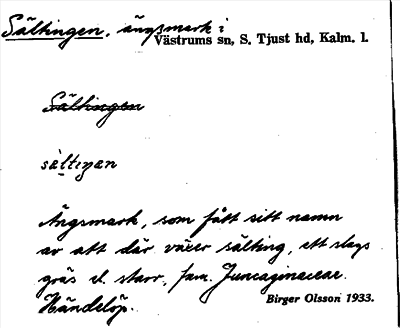 Sältingen, ängsmark i
Västrums sn, S. Tjust hd, Kalm. l.
Sältingen
Ängsmark, som fått sitt namn
av att där växer sälting, ett slags
gräs el. starr, fam. Juncaginaceae.
Händelöp.
Birger Olsson 1933.